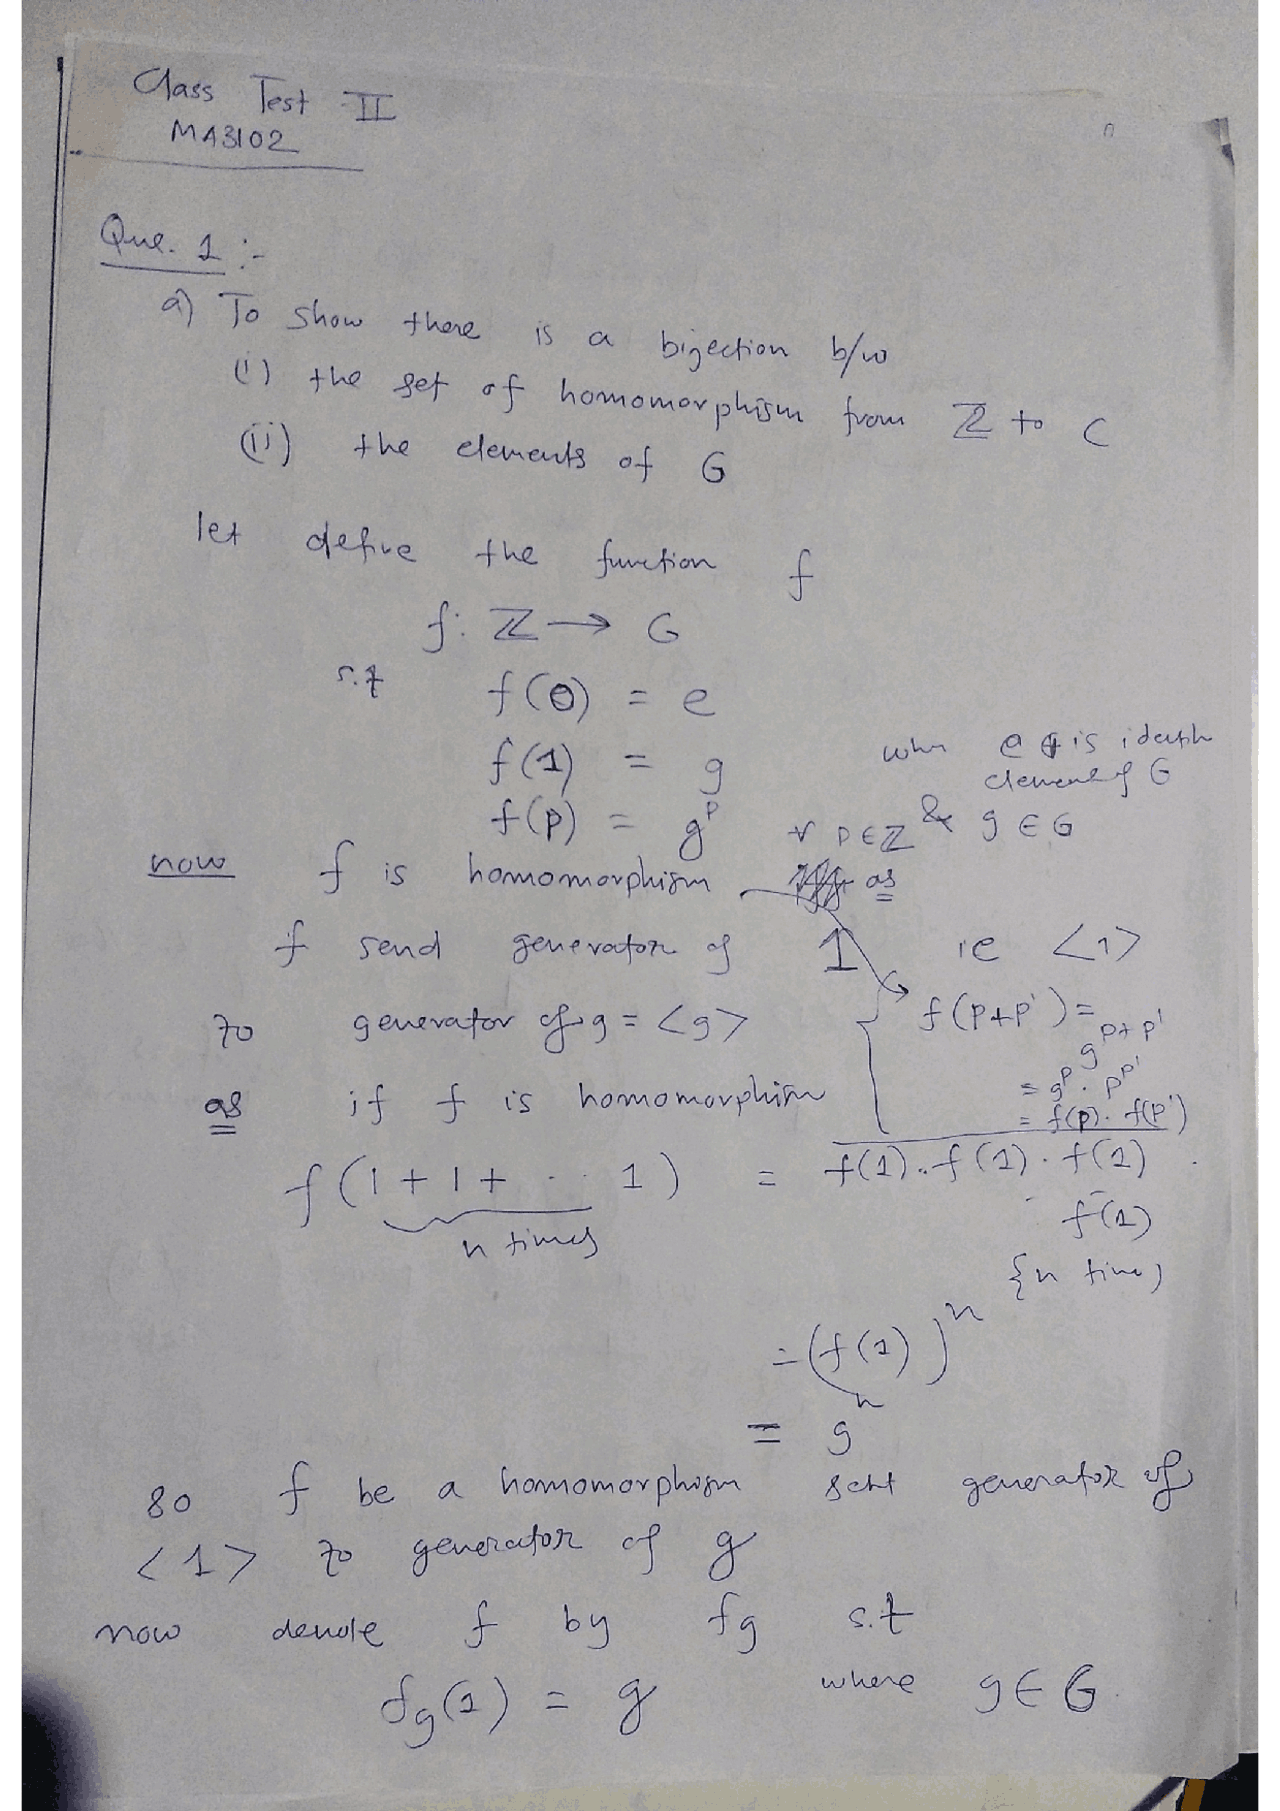 Class Test - II
MA3102
Que. 1 :-
a) To show there is a bijection b/w
(i) the set of homomorphism from ℤ to C
(ii) the elements of G
let define the function f
f: ℤ → G
s.t f(0) = e
f(1) = g
when e is
element of G
f(p) = g^p ∀ p ∈ ℤ & g ∈ G
now f is homomorphism as
f send generator of 1 ie <1>
f(p+p') =
g^{p+p'}
= g^p . p^{p'}
= f(p). f(p')
to generator of g = <g>
as if f is homomorphism
f(1+1+ .. 1) = f(1).f(1). f(1)
n times
f(1)
{n times}
= (f(1))^n
= g^n
so f be a homomorphism sent generator of
<1> to generator of g
now denote f by fg s.t
fg(1) = g where g ∈ G.